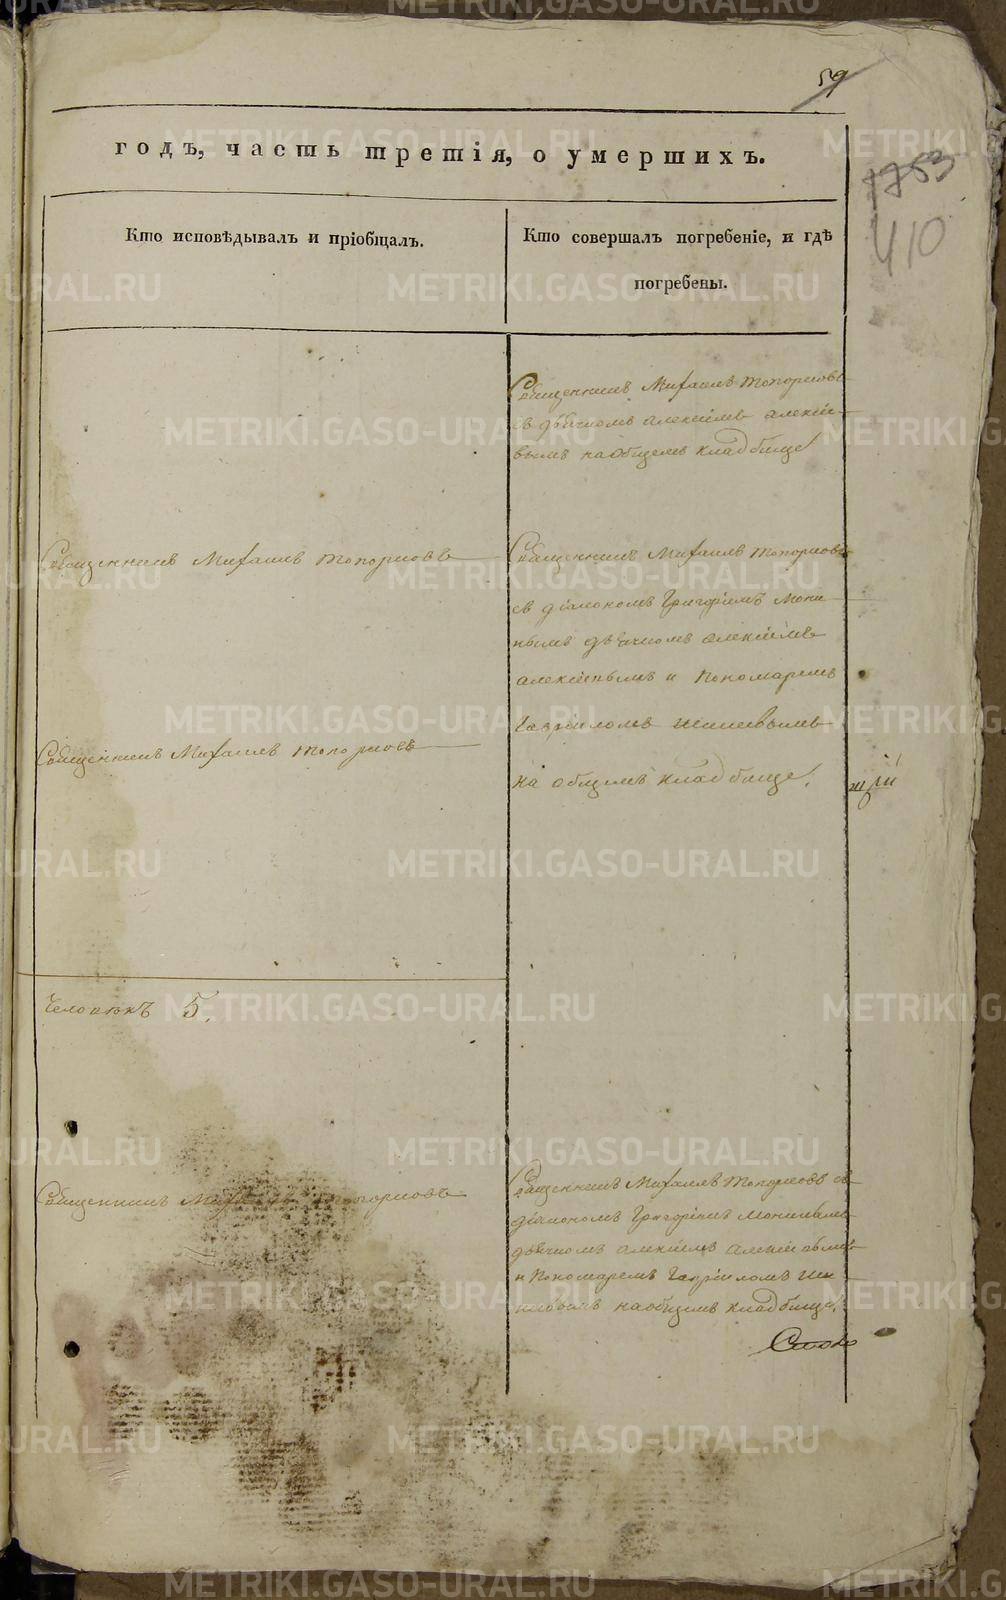 59
годъ, часть третія, о умершихъ.
1753
410
Кто исповѣдывалъ и пріобщалъ.
Кто совершалъ погребеніе, и гдѣ
погребены.
Священникъ Михаилъ Топорковъ
съ дьячкомъ Алексіемъ Алексіе-
вымъ на общемъ кладбище
Священникъ Михаилъ Топорковъ
Священникъ Михаилъ Топорковъ
съ діакономъ Григоріемъ Мони-
нымъ дьячкомъ Алексіемъ
и Пономаремъ
Гавріиломъ
на общемъ кладбище.
Священникъ Михаилъ Топорковъ
Человѣкъ 5.
Священникъ Михаилъ Топорковъ
Священникъ Михаилъ Топорковъ съ
діакономъ Григоріемъ
дьячкомъ Алексіемъ Алексіевымъ
и Пономаремъ Гавріиломъ
на общемъ кладбище.
METRIKI.GASO-URAL.RU